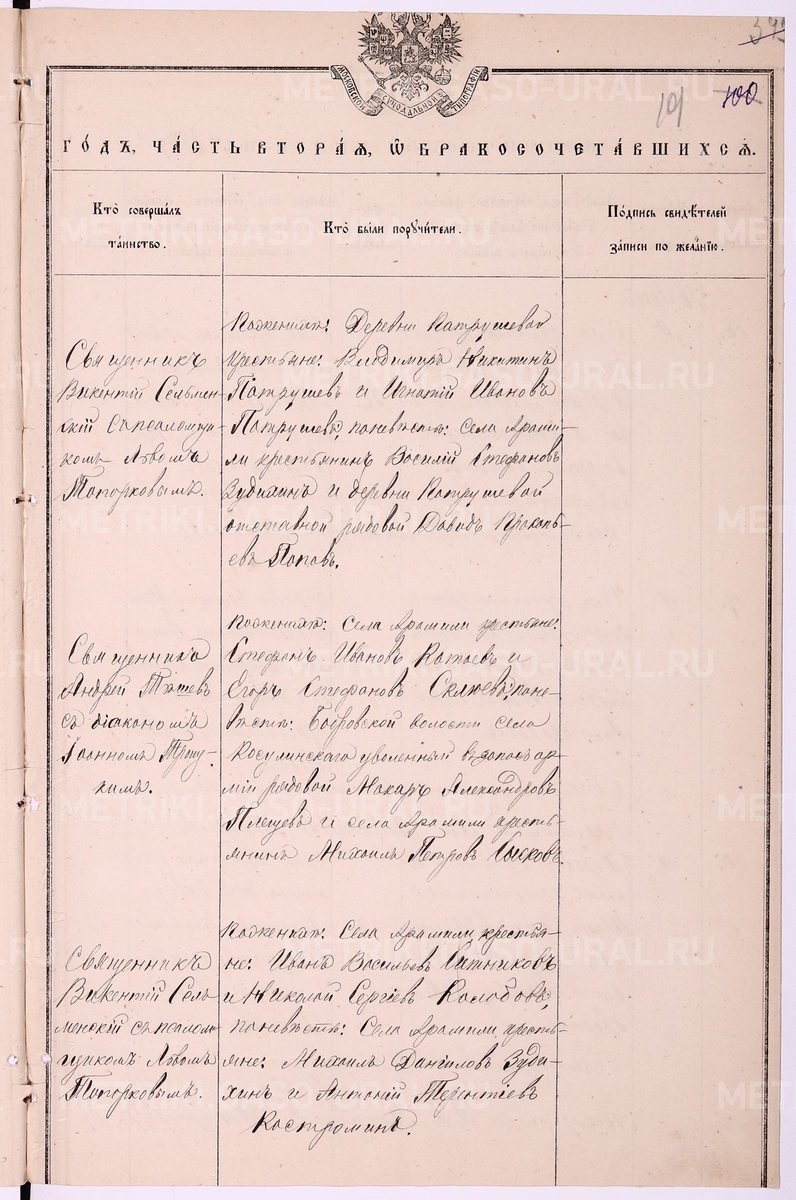 МОСКОВСКОЙ СѴНОДАЛЬНОЙ ТИПОГРАФІИ
101 100
ГО́ДЪ, ЧА́СТЬ ВТОРА́Я, Ѡ БРАКОСОЧЕТА́ВШИХСЯ.
Кто̀ соверша́лъ
та́инство.
Кто̀ бы́ли поручи́тели.
По́дпись свидѣ́телей
за́писи по жела́нїю.
Священникъ
Викентій Сельмен-
скій съ псаломщи-
комъ Львомъ
Топорковымъ.
По женихѣ: Деревни Патрушевой
крестьяне: Владиміръ Никитинъ
Патрушевъ и Игнатій Ивановъ
Патрушевъ; по невѣстѣ: села Арами-
ли крестьянинъ Василій Стефановъ
Зудихинъ и деревни Патрушевой
отставной рядовой Давидъ Прокопь-
евъ Поповъ.
Священникъ
Андрей
съ діакономъ
Іоанномъ
По женихѣ: Села Арамили крестьяне:
Стефанъ Ивановъ Катаевъ и
Егоръ Стефановъ по не-
вѣстѣ: Бобровской волости села
Косулинскаго уволенный въ запасъ ар-
міи рядовой Макаръ Александровъ
Плещевъ и села Арамили кресть-
янинъ Михаилъ Петровъ
Священникъ
Викентій Сель-
менскій съ псалом-
щикомъ Львомъ
Топорковымъ.
По женихѣ: Села Арамили крестья-
не: Иванъ Васильевъ Ситниковъ
и Николай Сергіевъ Колобовъ;
по невѣстѣ: Села Арамили кресть-
яне: Михаилъ Даніиловъ Зуди-
хинъ и Антоній Терентіевъ
Костроминъ.
METRIKI.GASO-URAL.RU